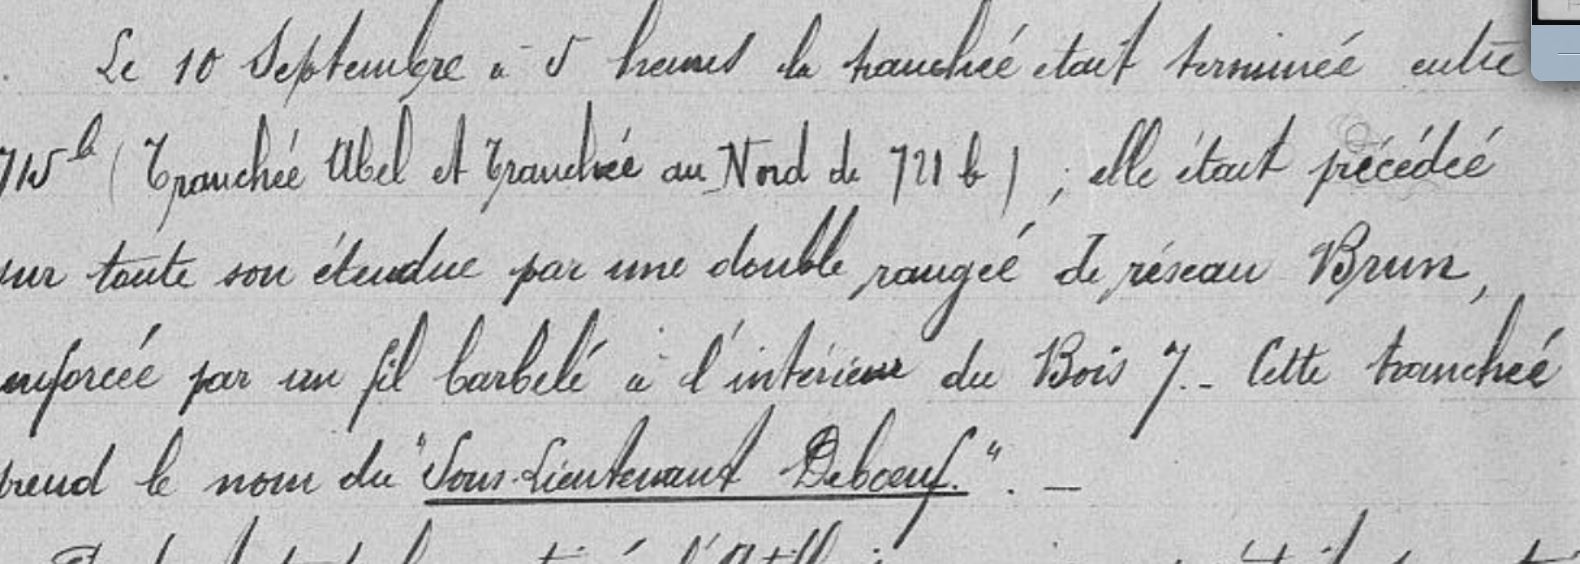 Le 10 Septembre à 5 heures la tranchée était terminée entre
715b (Tranchée Abel et Tranchée au Nord de 721 b) ; elle était précédée
sur toute son étendue par une double rangée de réseau Brun,
enforcée par un fil barbelé à l'intérieur du Bois 7. - Cette tranchée
prend le nom du "Sous-Lieutenant Debœuf.". -